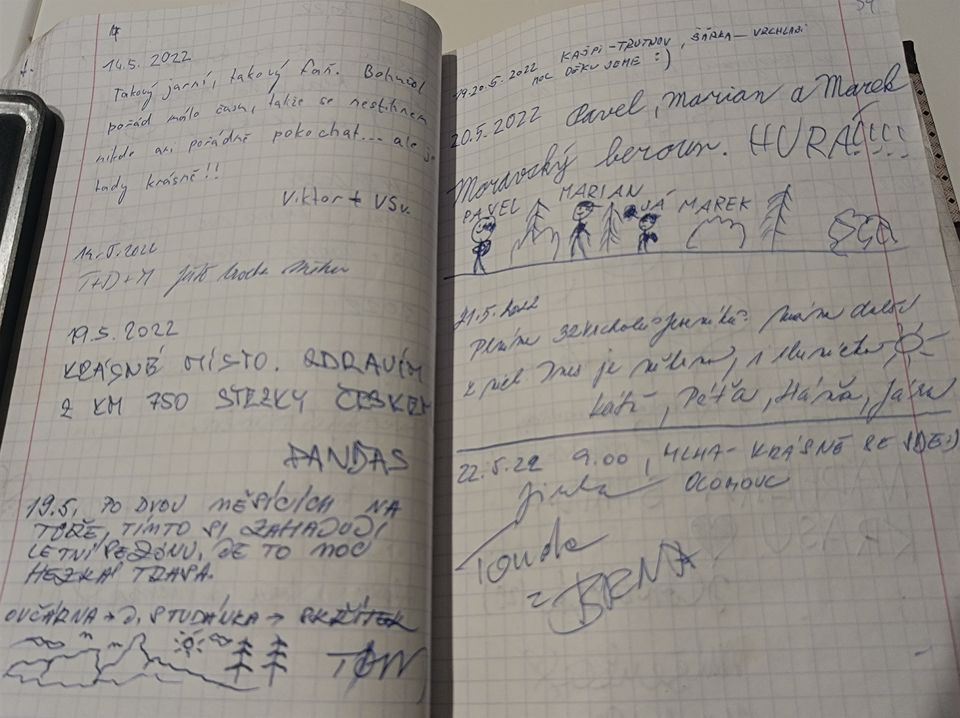 14.5. 2022
Takový jarní, takový fajn. Bohužel
pořád málo času, takže se nestihnem
nikde ani pořádně pokochat... ale je
tady krásně!!
Viktor + VSv.
14.5.2022
T+D+M
19.5. 2022
KRÁSNÉ MÍSTO. ZDRAVÍM
Z KM 750 STEZKY ČESKEM
PANDAS
19.5. PO DVOU MĚSÍCÍCH NA
TÍMTO SI ZAHAJUJI
LETNÍ SEZÓNU. JE TO MOC
HEZKÁ TRASA.
OVČÁRNA → J. STUDÁNKA → SKŘÍTEK
TOM
19.20.5.2022 KAŠPI-TRUTNOV, ŠÁRKA - VRCHLABÍ
MOC DĚKUJEME :)
20.5.2022 Pavel, Marian a Marek
Moravský beroun. HURÁ!!!!
PAVEL MARIAN JÁ MAREK
21.5.2022
máme další
z nich Dnes je s sluníčko
Káťa, Péťa, Háňa, Jára
22.5.22 9.00, MLHA - KRÁSNĚ SE JDE:)
Jirka OLOMOUC
Tonda
z BRNA